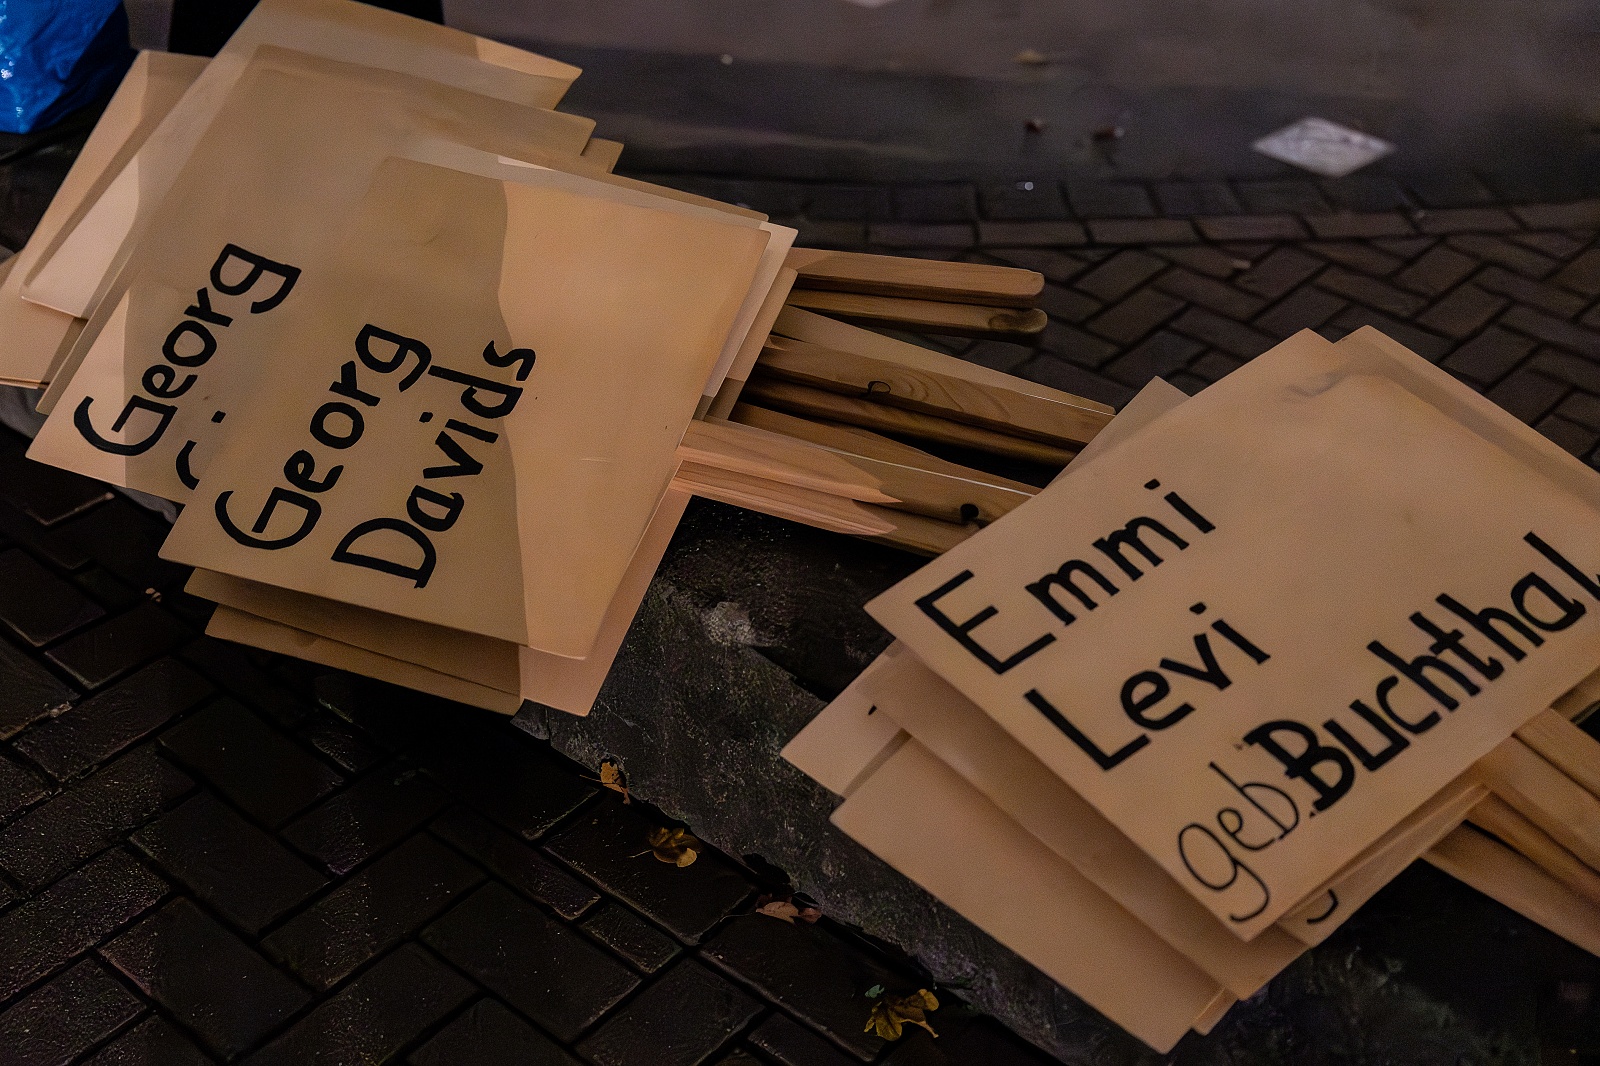 Georg
Georg
Davids
Emmi
Levi
geb. Buchthal